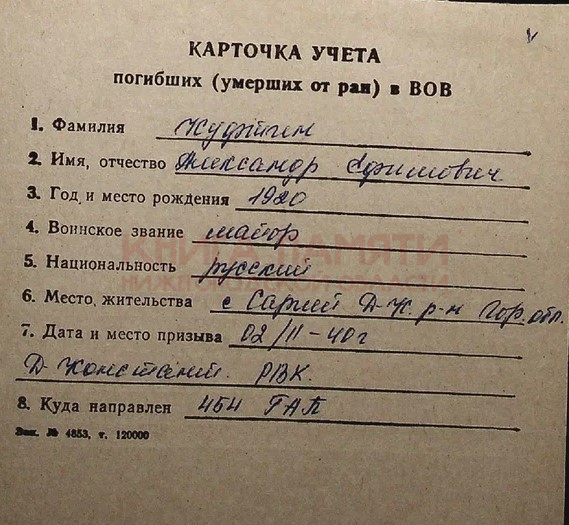 КАРТОЧКА УЧЕТА
погибших (умерших от ран) в ВОВ
1. Фамилия
2. Имя, отчество Александр Ефимович
3. Год и место рождения 1920
4. Воинское звание майор
КНИГА ПАМЯТИ
5. Национальность русский
НИЖЕГОРОДСКОЙ ОБЛАСТИ
6. Место, жительства с Сарлей Д-К. р-н Гор. обл.
7. Дата и место призыва 02/II-40г
Д-Константин. РВК.
8. Куда направлен 454 ГАП
Зак. № 4853, т. 120000